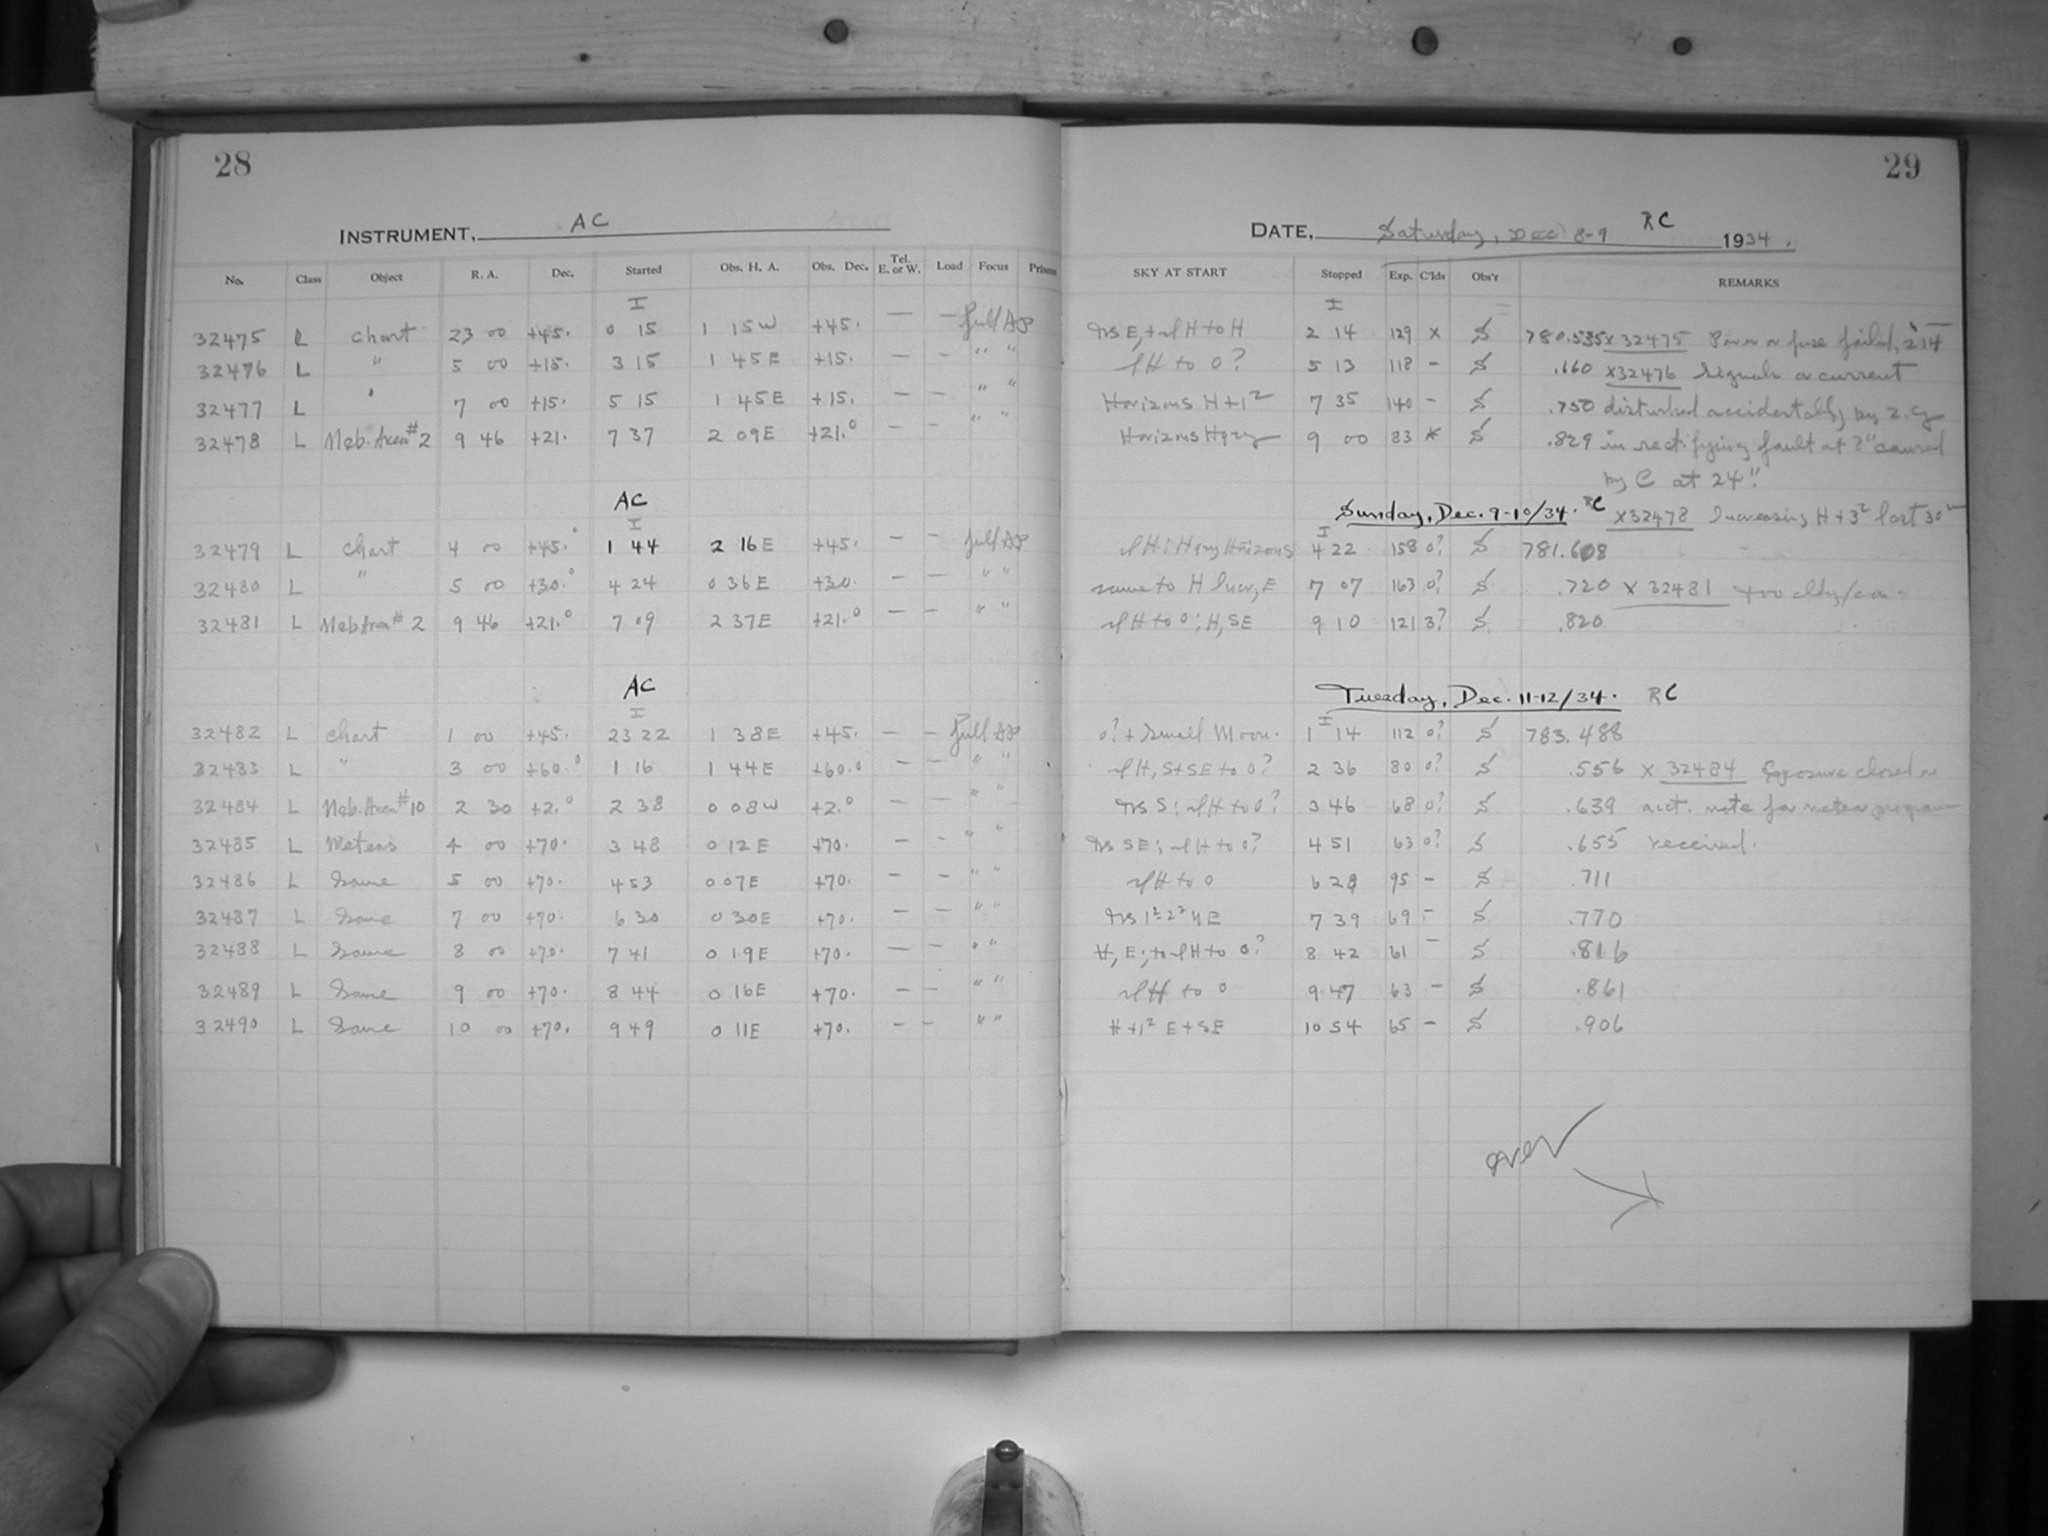 28
29
INSTRUMENT, AC
DATE, Saturday, Dec. 8-9 RC 1934.
No. Class Object R. A. Dec. Started Obs. H. A. Obs. Dec. Tel. E. or W. Load Focus Prisms SKY AT START Stopped Exp. C'lds Obs'r REMARKS
I I
32475 L chart 23 00 +45. 0 15 1 15W +45. — — full AP 2 14 129 x S 780.535 x32475 Power or fuse failed, 2 14
32476 L " 5 00 +15. 3 15 1 45E +15. — — " " 5 13 118 — S .660 x32476 Signals or current
32477 L " 7 00 +15. 5 15 1 45E +15. — — " " Horizons H+1² 7 35 140 — S .750 disturbed accidentally by
32478 L Neb. Area #2 9 46 +21. 7 37 2 09E +21.° — — " " Horizons Hazy 9 00 83 * S .829 in rectifying fault at 2" caused
by C at 24".
AC Sunday, Dec. 9-10/34. RC x32478 Increasing H+3² last 30
I I
32479 L chart 4 00 +45.° 1 44 2 16E +45. — — full AP 4 22 158 0? S 781.608
32480 L " 5 00 +30.° 4 24 0 36E +30. — — " " same to H low, E 7 07 163 0? S .720 x 32481 too cldy/
32481 L Neb Area #2 9 46 +21.° 7 09 2 37E +21.° — — " " H to 0; H, SE 9 10 121 3? S .820
AC Tuesday, Dec. 11-12/34. RC
I I
32482 L chart 1 00 +45. 23 22 1 38E +45. — — full AP 0? + Small Moon. 1 14 112 0? S 783.488
32483 L " 3 00 +60.° 1 16 1 44E +60.° — — " " H, S+SE to 0? 2 36 80 0? S .556 x 32484 Exposure closed
32484 L Neb. Area #10 2 30 +2.° 2 38 0 08W +2.° — — " " 3 46 68 0? S .639 acct. note for meteor program
32485 L Meteors 4 00 +70. 3 48 0 12E +70. — — " " 4 51 63 0? S .655 received.
32486 L Same 5 00 +70. 4 53 0 07E +70. — — " " H to 0 6 28 95 — S .711
32487 L Same 7 00 +70. 6 30 0 30E +70. — — " " 7 39 69 — S .770
32488 L Same 8 00 +70. 7 41 0 19E +70. — — " " 8 42 61 — S .816
32489 L Same 9 00 +70. 8 44 0 16E +70. — — " " H to 0 9 47 63 — S .861
32490 L Same 10 00 +70. 9 49 0 11E +70. — — " " H+1² E+SE 10 54 65 — S .906
over